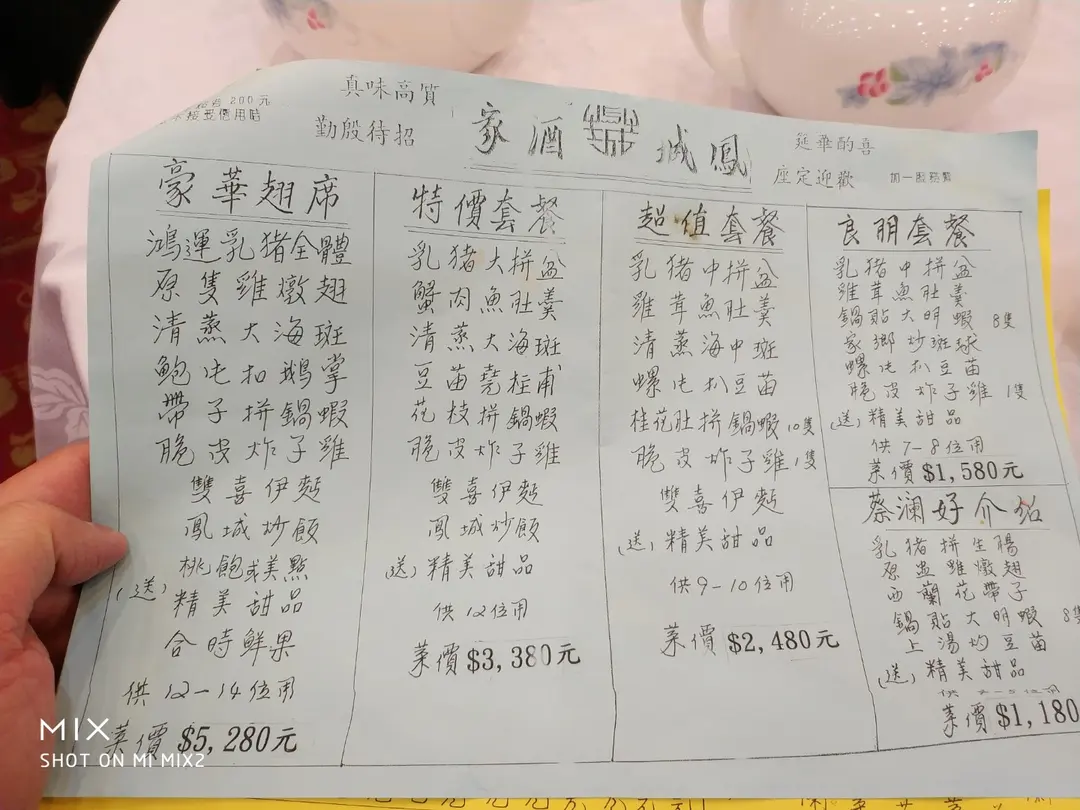 200元
不接受信用咭
真味高質
勤殷待招
家酒囍城鳳
筵華酌喜
座定迎歡
加一服務費
豪華翅席
鴻運乳猪全體
原隻雞燉翅
清蒸大海斑
鮑甩扣鵝掌
帶子拼鍋蝦
脆皮炸子雞
雙喜伊麵
鳳城炒飯
桃飽或美點
(送)
精美甜品
合時鮮果
供12-14位用
菜價 $5,280元
特價套餐
乳猪大拼盆
蟹肉魚肚羹
清蒸大海斑
豆苗堯柱甫
花枝拼鍋蝦
脆皮炸子雞
雙喜伊麵
鳳城炒飯
(送)精美甜品
供12位用
菜價 $3,380元
超值套餐
乳猪中拼盆
雞茸魚肚羹
清蒸海中斑
螺甩扒豆苗
桂花肚拼鍋蝦10隻
脆皮炸子雞1隻
雙喜伊麵
(送)精美甜品
供9-10位用
菜價 $2,480元
良朋套餐
乳猪中拼盆
雞茸魚肚羹
鍋貼大明蝦 8隻
家鄉炒斑球
螺甩扒豆苗
脆皮炸子雞 1隻
(送)精美甜品
供7-8位用
菜價 $1,580元
蔡瀾好介紹
乳猪拼生腸
原盅雞燉翅
西蘭花帶子
鍋貼大明蝦 8隻
上湯灼豆苗
(送)精美甜品
菜價 $1,180
MIX
SHOT ON MI MIX2